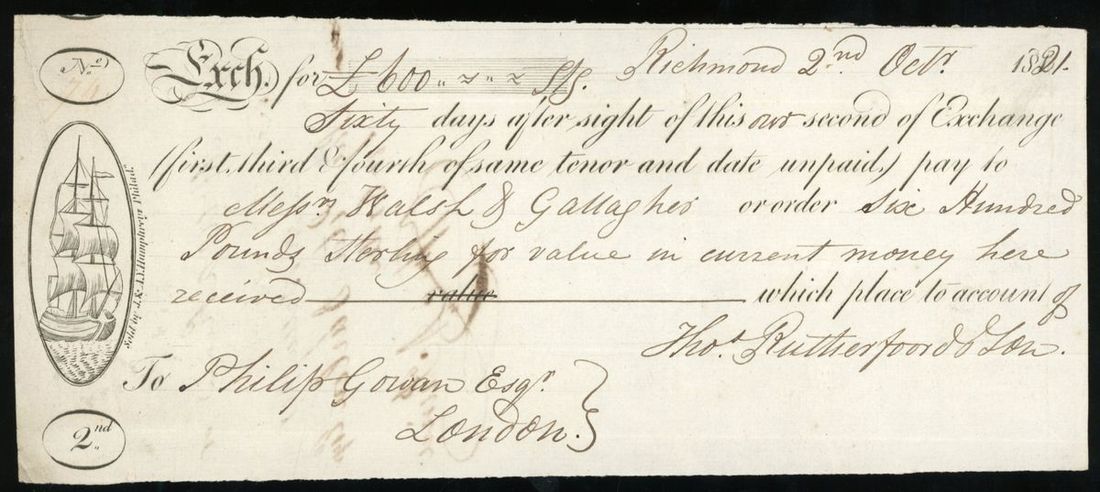 No.
Exch. for £600 " " " Stg. Richmond 2nd Octr. 1821.
Sixty days after sight of this our second of Exchange
(first, third & fourth of same tenor and date unpaid) pay to
Messrs Walsh & Gallagher or order Six Hundred
Pounds Sterling for value in current money here
received value which place to account of
Thos. Rutherfoord & Son.
To Philip Gowan Esqr.
London.
2nd
Sold by J. & A.Y. Humphreys Philada.